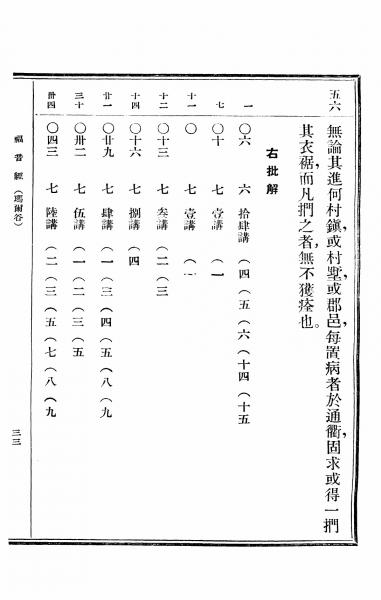 五六
無論其進何村鎮，或村墅，或郡邑，每置病者於通衢，固求或得一捫
其衣裾，而凡捫之者，無不獲痊也。
右批解
一 〇六 六 拾肆講 （四（五（六（十四（十五
七 〇十 七 壹講 （一
十一 〇 七 壹講 （一
十二 〇十三 七 叁講 （二（三
十四 〇十六 七 捌講 （四
廿一 〇廿九 七 肆講 （一（三（四（五（八（九
三十 〇卅二 七 伍講 （一（二（三（五
卅四 〇四三 七 陸講 （二（三（五（七（八（九
福音經（瑪爾谷）
三三